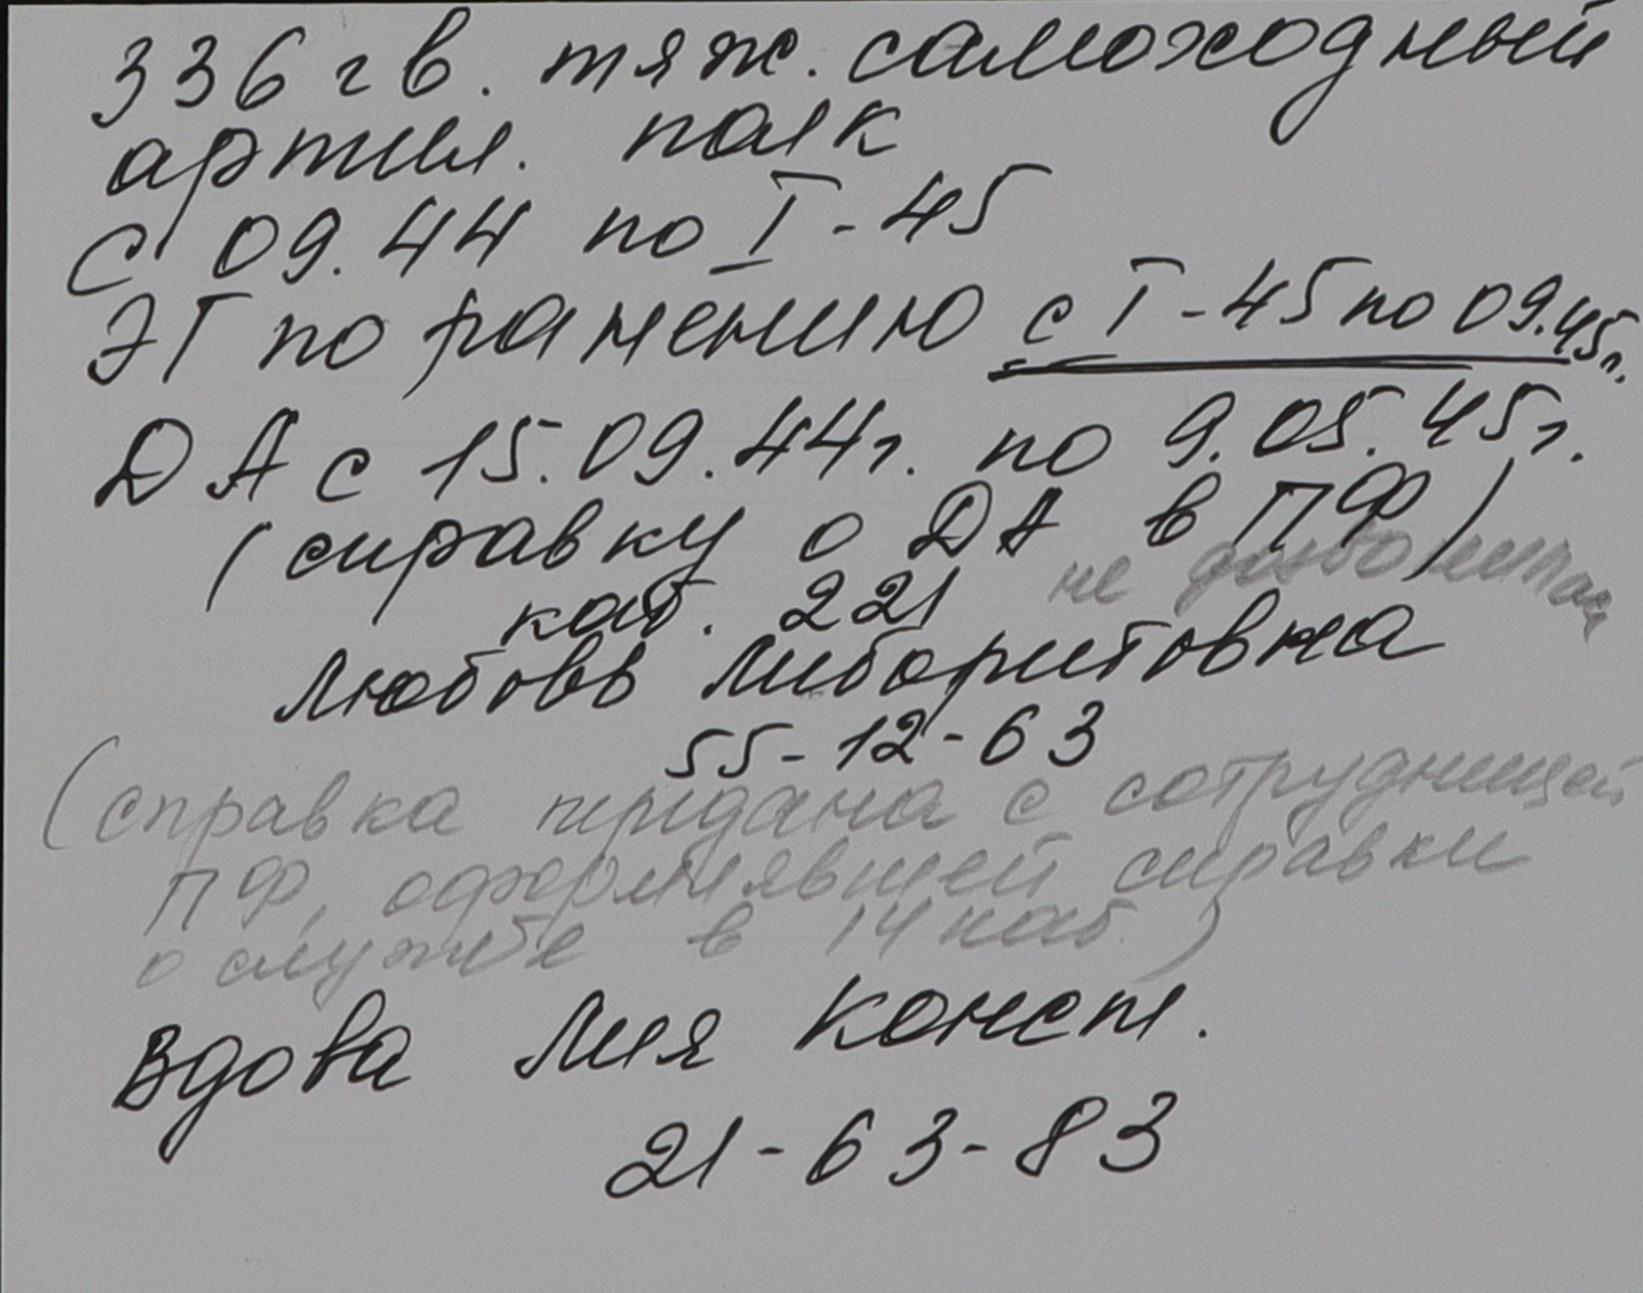 336 гв. тяж. самоходный
артил. полк
С 09.44 по I-45
ЭГ по ранению с I-45 по 09.45г.
ДА с 15.09.44г. по 9.05.45г.
(справку о ДА в ПФ)
не дозвонилась
каб. 221
Любовь Либоритовна
55-12-63
(справка передана с сотрудницей
ПФ, оформлявшей справки
о службе в 14 каб.)
Вдова Лия Конст.
21-63-83